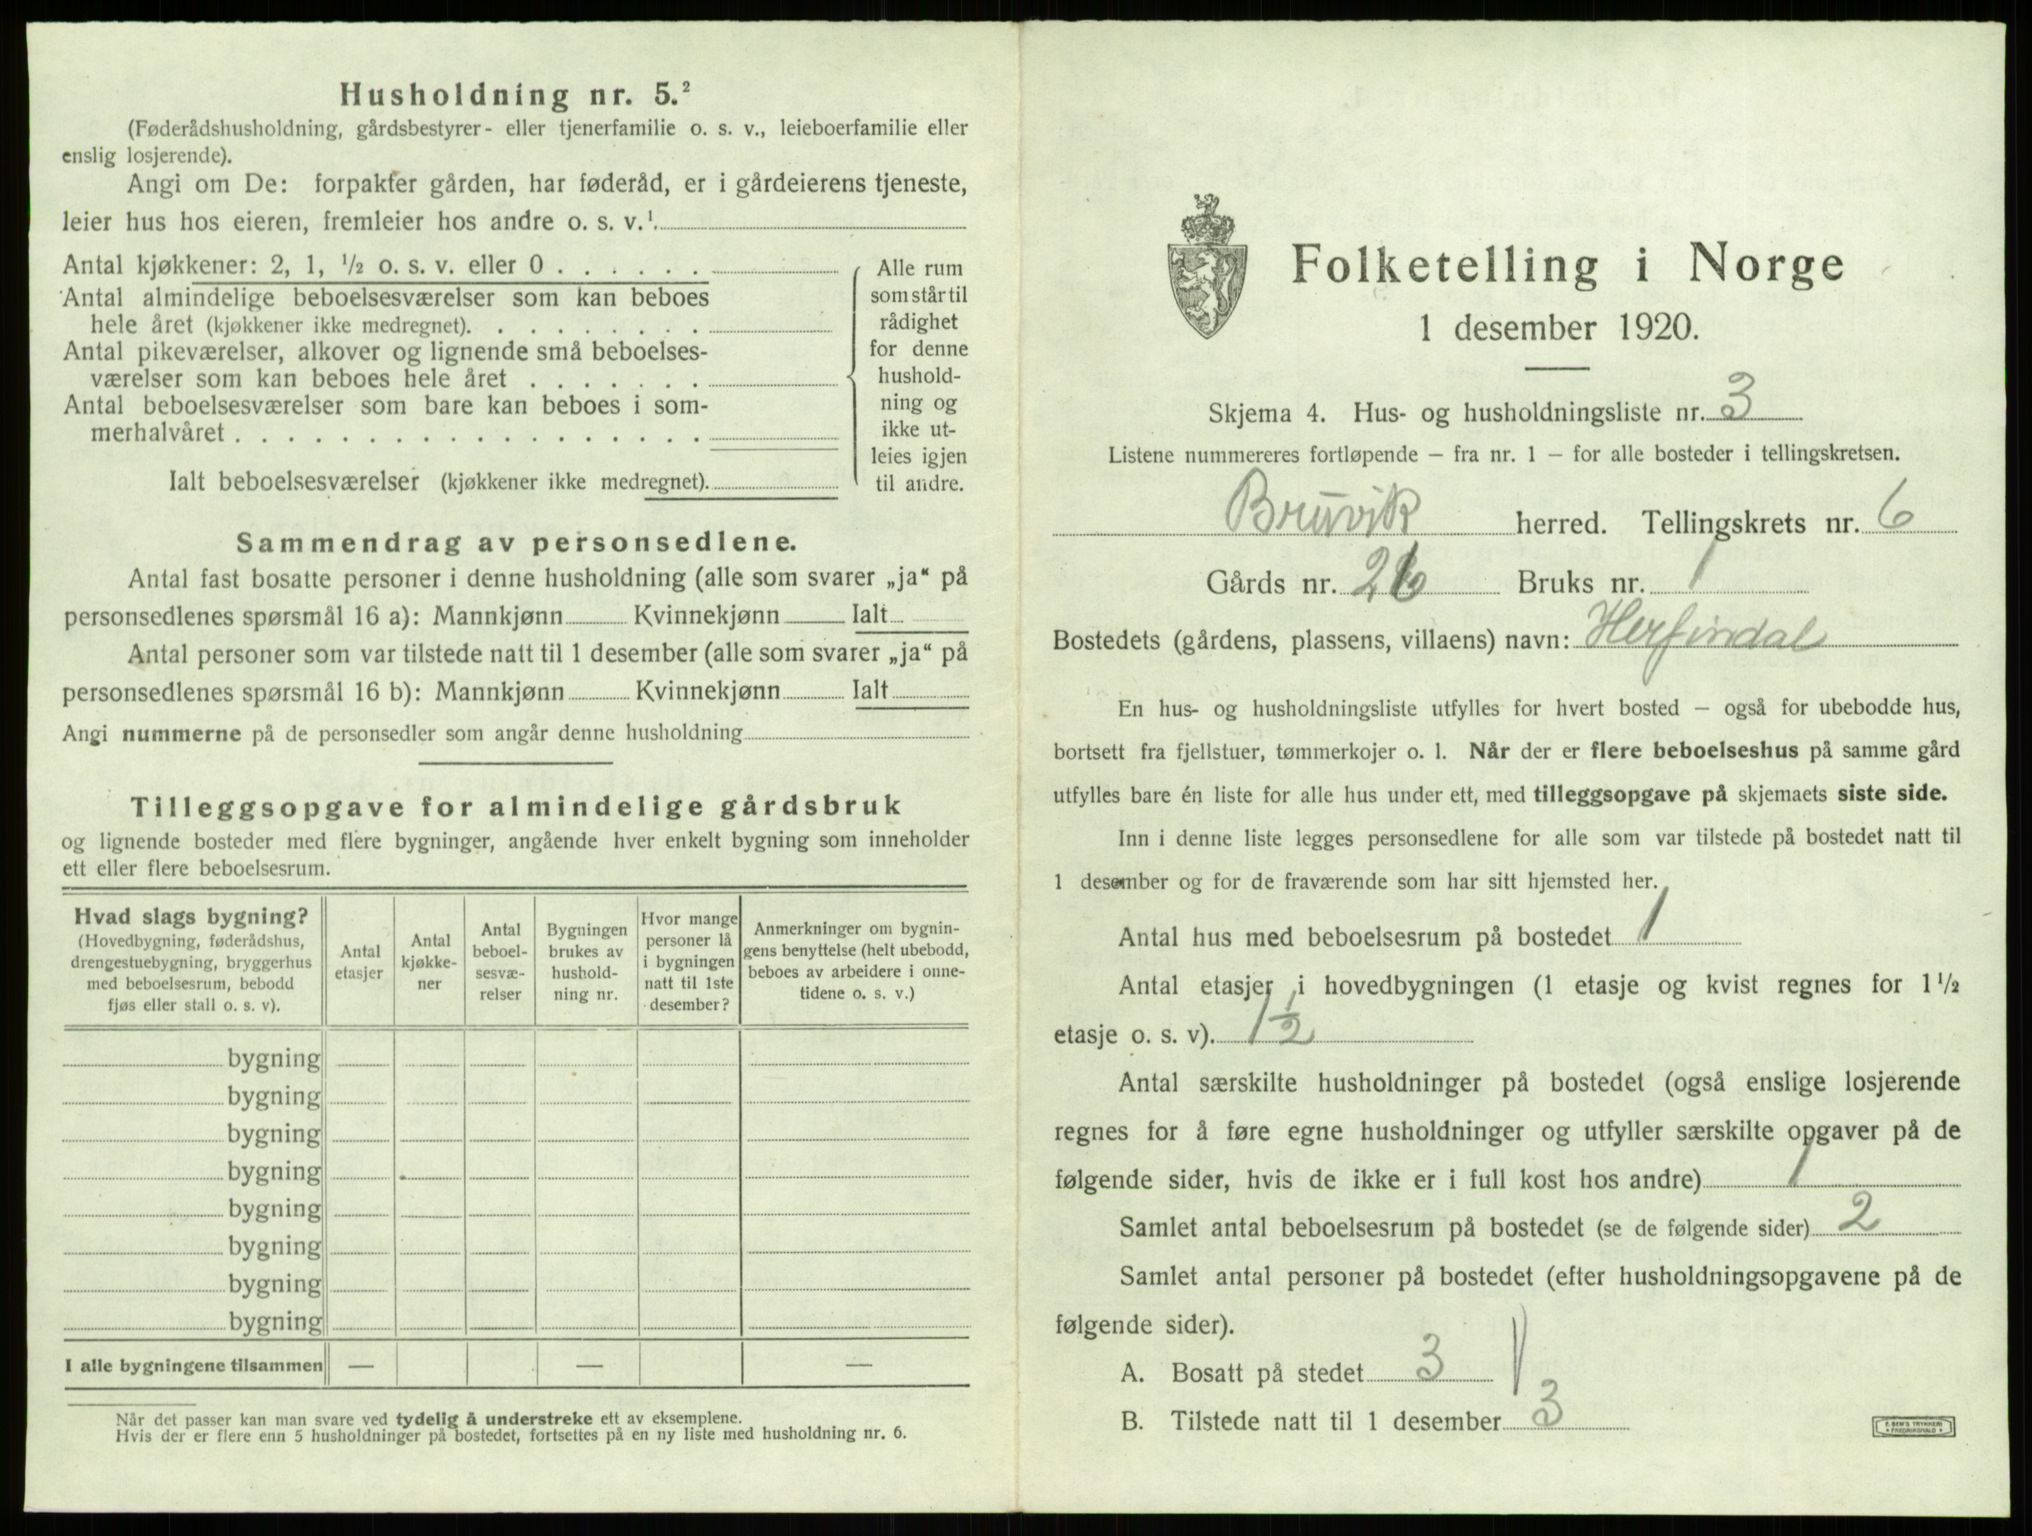 Husholdning nr. 5.²
(Føderådshusholdning, gårdsbestyrer- eller tjenerfamilie o. s. v., leieboerfamilie eller
enslig losjerende).
Angi om De: forpakter gården, har føderåd, er i gårdeierens tjeneste,
leier hus hos eieren, fremleier hos andre o. s. v.¹
Antal kjøkkener: 2, 1, ½ o. s. v. eller 0 . . . . . .
Antal almindelige beboelsesværelser som kan beboes
hele året (kjøkkener ikke medregnet). . . . . . . . .
Antal pikeværelser, alkover og lignende små beboelses-
værelser som kan beboes hele året . . . . . . .
Antal beboelsesværelser som bare kan beboes i som-
merhalvåret . . . . . . . . . . . . . . . . . .
Ialt beboelsesværelser (kjøkkener ikke medregnet).
Alle rum
som står til
rådighet
for denne
hushold-
ning og
ikke ut-
leies igjen
til andre.
Sammendrag av personsedlene.
Antal fast bosatte personer i denne husholdning (alle som svarer „ja“ på
personsedlenes spørsmål 16 a): Mannkjønn Kvinnekjønn Ialt
Antal personer som var tilstede natt til 1 desember (alle som svarer „ja“ på
personsedlenes spørsmål 16 b): Mannkjønn Kvinnekjønn Ialt
Angi nummerne på de personsedler som angår denne husholdning
Tilleggsopgave for almindelige gårdsbruk
og lignende bosteder med flere bygninger, angående hver enkelt bygning som inneholder
ett eller flere beboelsesrum.
Hvad slags bygning?
(Hovedbygning, føderådshus,
drengestuebygning, bryggerhus
med beboelsesrum, bebodd
fjøs eller stall o. s. v).
Antal
etasjer
Antal
kjøkke-
ner
Antal
beboel-
sesvæ-
relser
Bygningen
brukes av
hushold-
ning nr.
Hvor mange
personer lå
i bygningen
natt til 1ste
desember?
Anmerkninger om bygnin-
gens benyttelse (helt ubebodd,
beboes av arbeidere i onne-
tidene o. s. v.)
bygning
bygning
bygning
bygning
bygning
bygning
bygning
bygning
I alle bygningene tilsammen — — —
Når det passer kan man svare ved tydelig å understreke ett av eksemplene.
Hvis der er flere enn 5 husholdninger på bostedet, fortsettes på en ny liste med husholdning nr. 6.
Folketelling i Norge
1 desember 1920.
Skjema 4. Hus- og husholdningsliste nr. 3
Listene nummereres fortløpende – fra nr. 1 – for alle bosteder i tellingskretsen.
Bruvik herred. Tellingskrets nr. 6
Gårds nr. 26 Bruks nr. 1
Bostedets (gårdens, plassens, villaens) navn: Herfindal
En hus- og husholdningsliste utfylles for hvert bosted – også for ubebodde hus,
bortsett fra fjellstuer, tømmerkojer o. l. Når der er flere beboelseshus på samme gård
utfylles bare én liste for alle hus under ett, med tilleggsopgave på skjemaets siste side.
Inn i denne liste legges personsedlene for alle som var tilstede på bostedet natt til
1 desember og for de fraværende som har sitt hjemsted her.
Antal hus med beboelsesrum på bostedet 1
Antal etasjer i hovedbygningen (1 etasje og kvist regnes for 1½
etasje o. s. v). 1½
Antal særskilte husholdninger på bostedet (også enslige losjerende
regnes for å føre egne husholdninger og utfyller særskilte opgaver på de
følgende sider, hvis de ikke er i full kost hos andre) 1
Samlet antal beboelsesrum på bostedet (se de følgende sider) 2
Samlet antal personer på bostedet (efter husholdningsopgavene på de
følgende sider).
A. Bosatt på stedet 3
B. Tilstede natt til 1 desember 3
E. SEM'S TRYKKERI
FREDRIKSHALD